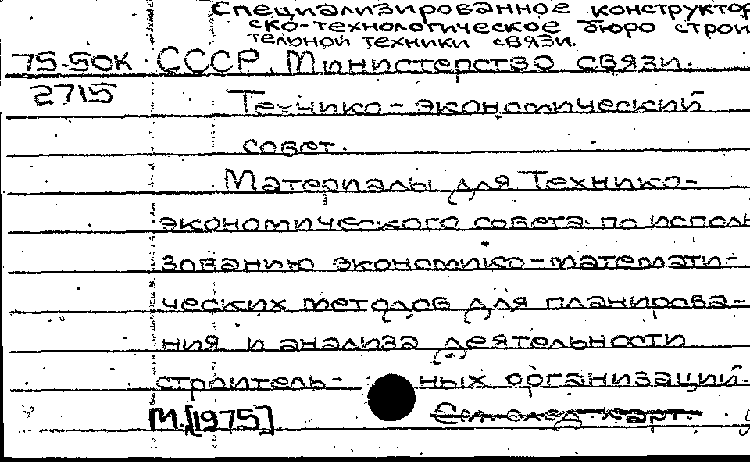 Специализированное конструктор
ско-технологическое бюро строи
тельной техники связи.
75-50К СССР. Министерство связи.
2715
Технико-экономический
совет.
Материалы для Технико-
экономического совета по исполь
зованию экономико-математи-
ческих методов для планирова-
ния и анализа деятельности
строитель- ных организаций.
М.[1975]